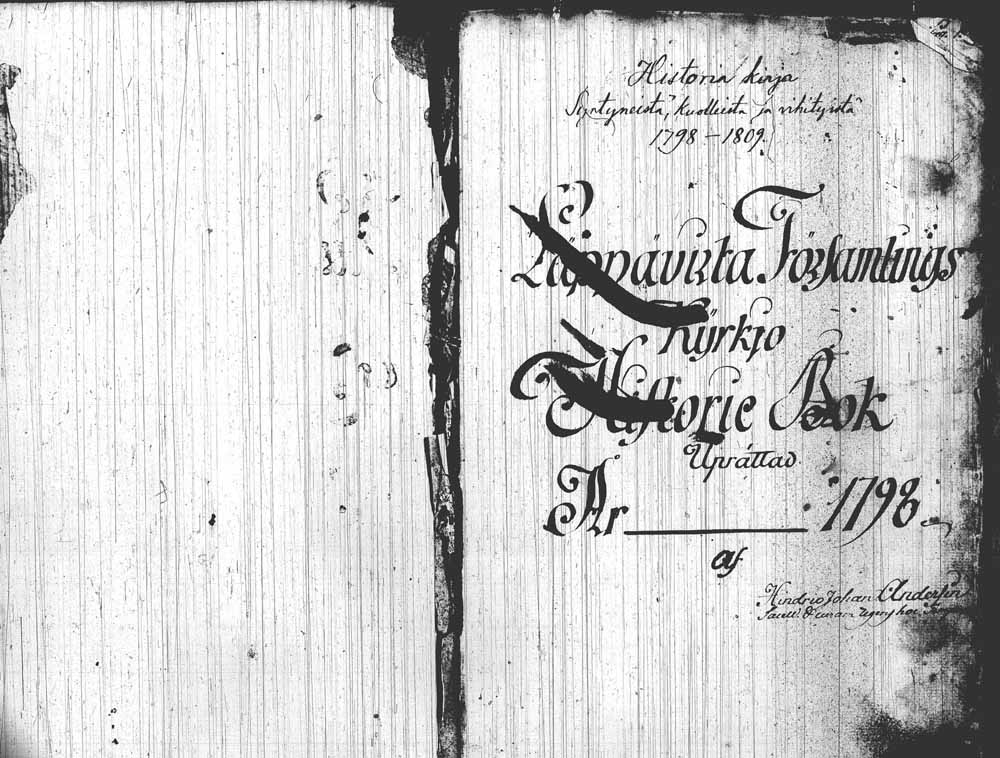 Historia kirja
Syntyneistä, kuolleista ja vihityistä
1798 – 1809.
Läppävirta Församlings
Kyrkjo
Historie Bok
Uprättad
År 1798.
af
Hindric Johan Andersin